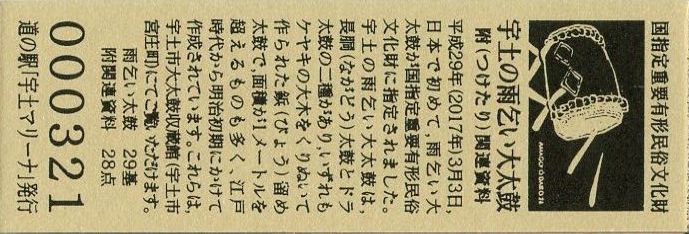 国指定重要有形民俗文化財
AMAGOI ODAIKO 26
宇土の雨乞い大太鼓
附(つけたり)関連資料
平成29年(2017)年3月3日、
日本で初めて、雨乞い大
太鼓が国指定重要有形民俗
文化財に指定されました。
宇土の雨乞い大太鼓は、
長胴(ながどう)太鼓とドラ
太鼓の二種があり、いずれも
ケヤキの大木をくりぬいて
作られた鋲(びょう)留め
太鼓で、面径が1メートルを
超えるものも多く、江戸
時代から明治初期にかけて
作成されています。これらは、
宇土市大太鼓収蔵館(宇土市
宮庄町)にてご覧いただけます。
雨乞い太鼓 29基
附関連資料 28点
000321
道の駅「宇土マリーナ」発行